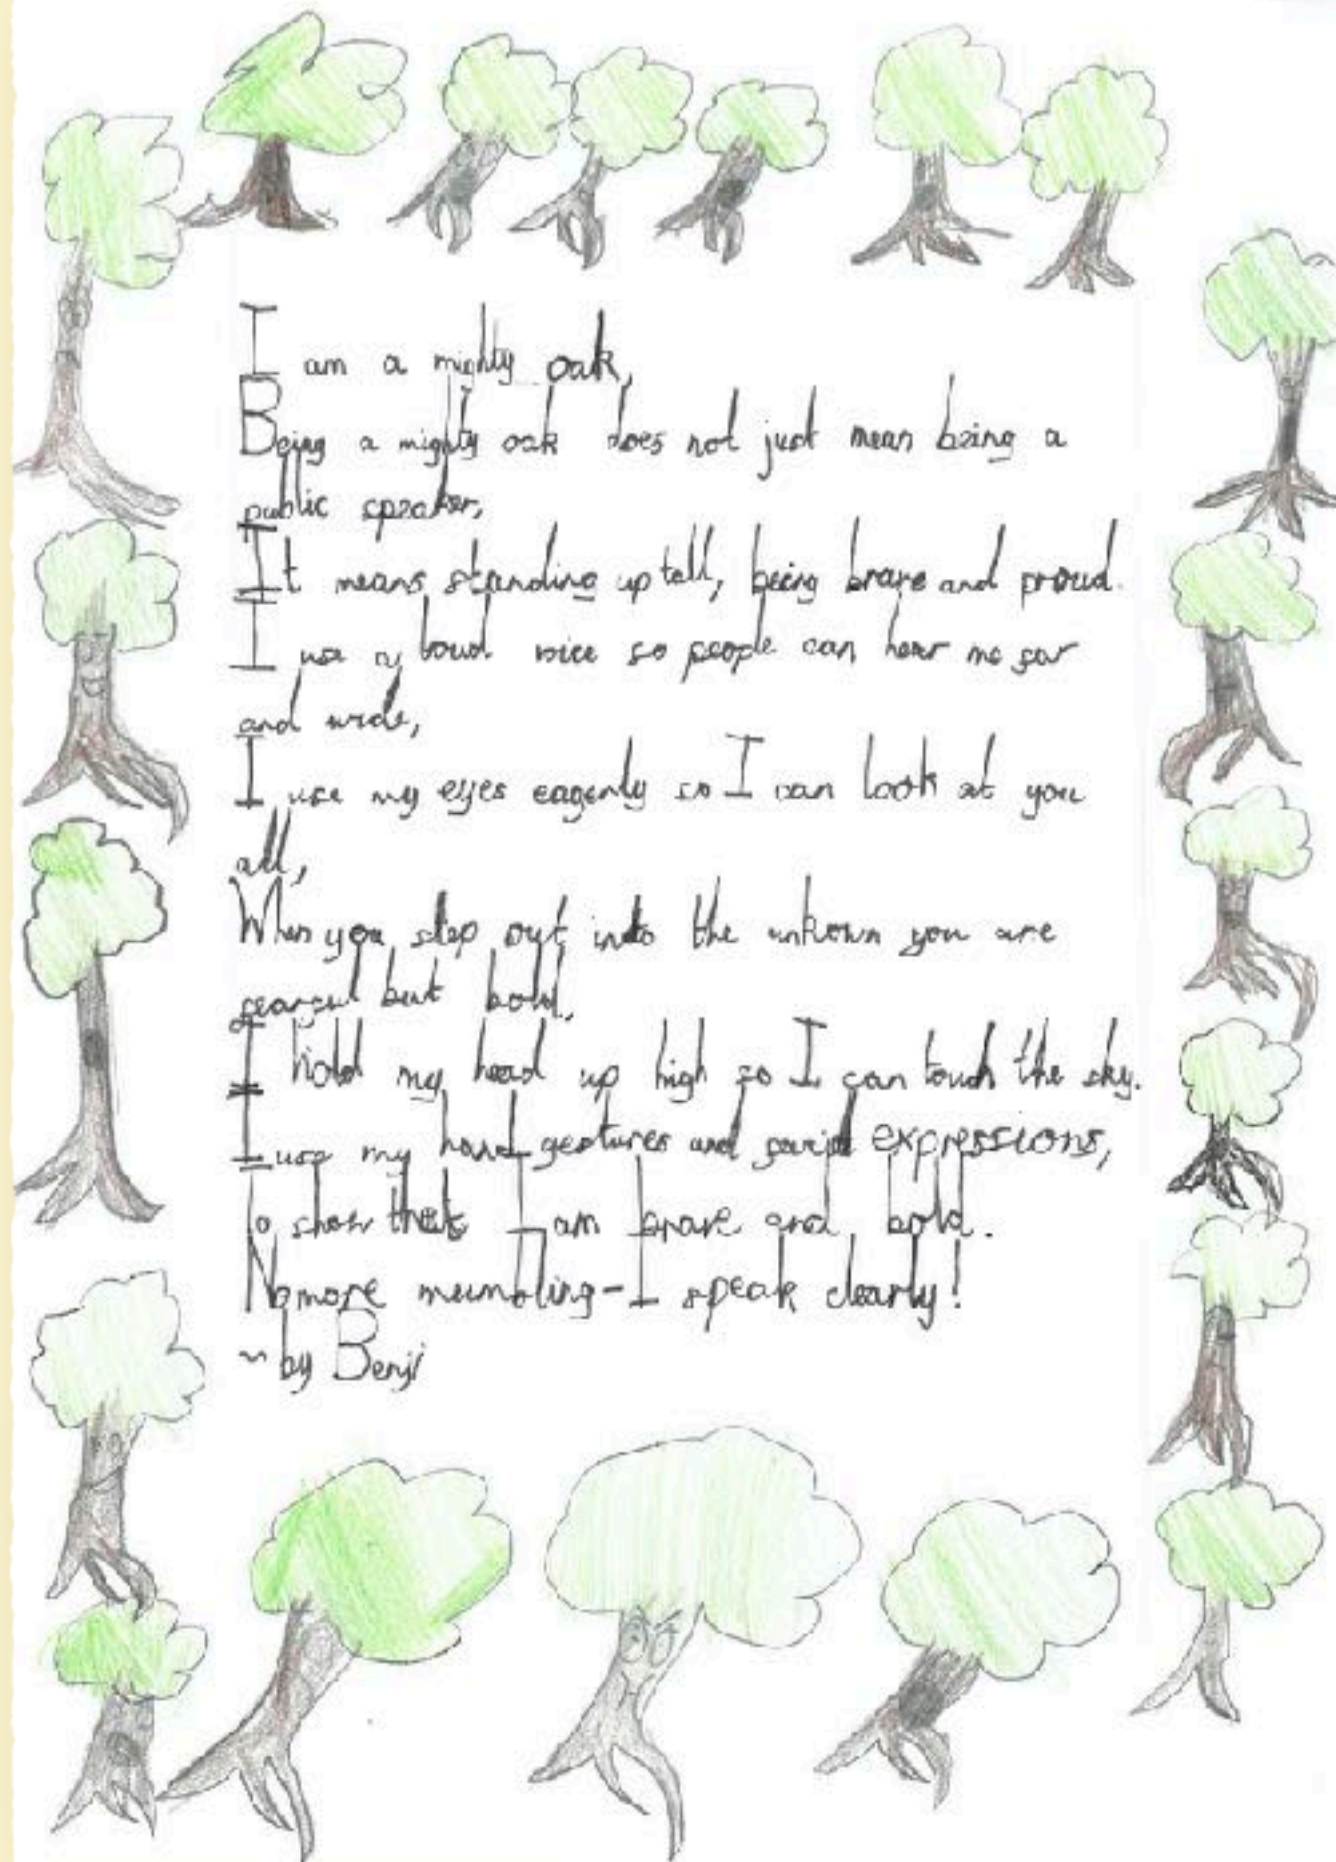 I am a mighty oak,
Being a mighty oak does not just mean being a
public speaker,
It means standing up tall, being brave and proud.
I use a loud voice so people can hear me far
and wide,
I use my eyes eagerly so I can look at you
all,
When you step out into the unkown you are
fearful but bold,
I hold my head up high so I can touch the sky.
I use my hand gestures and facial expressions,
To show that I am brave and bold.
No more mumbling - I speak clearly!
~ by Benji